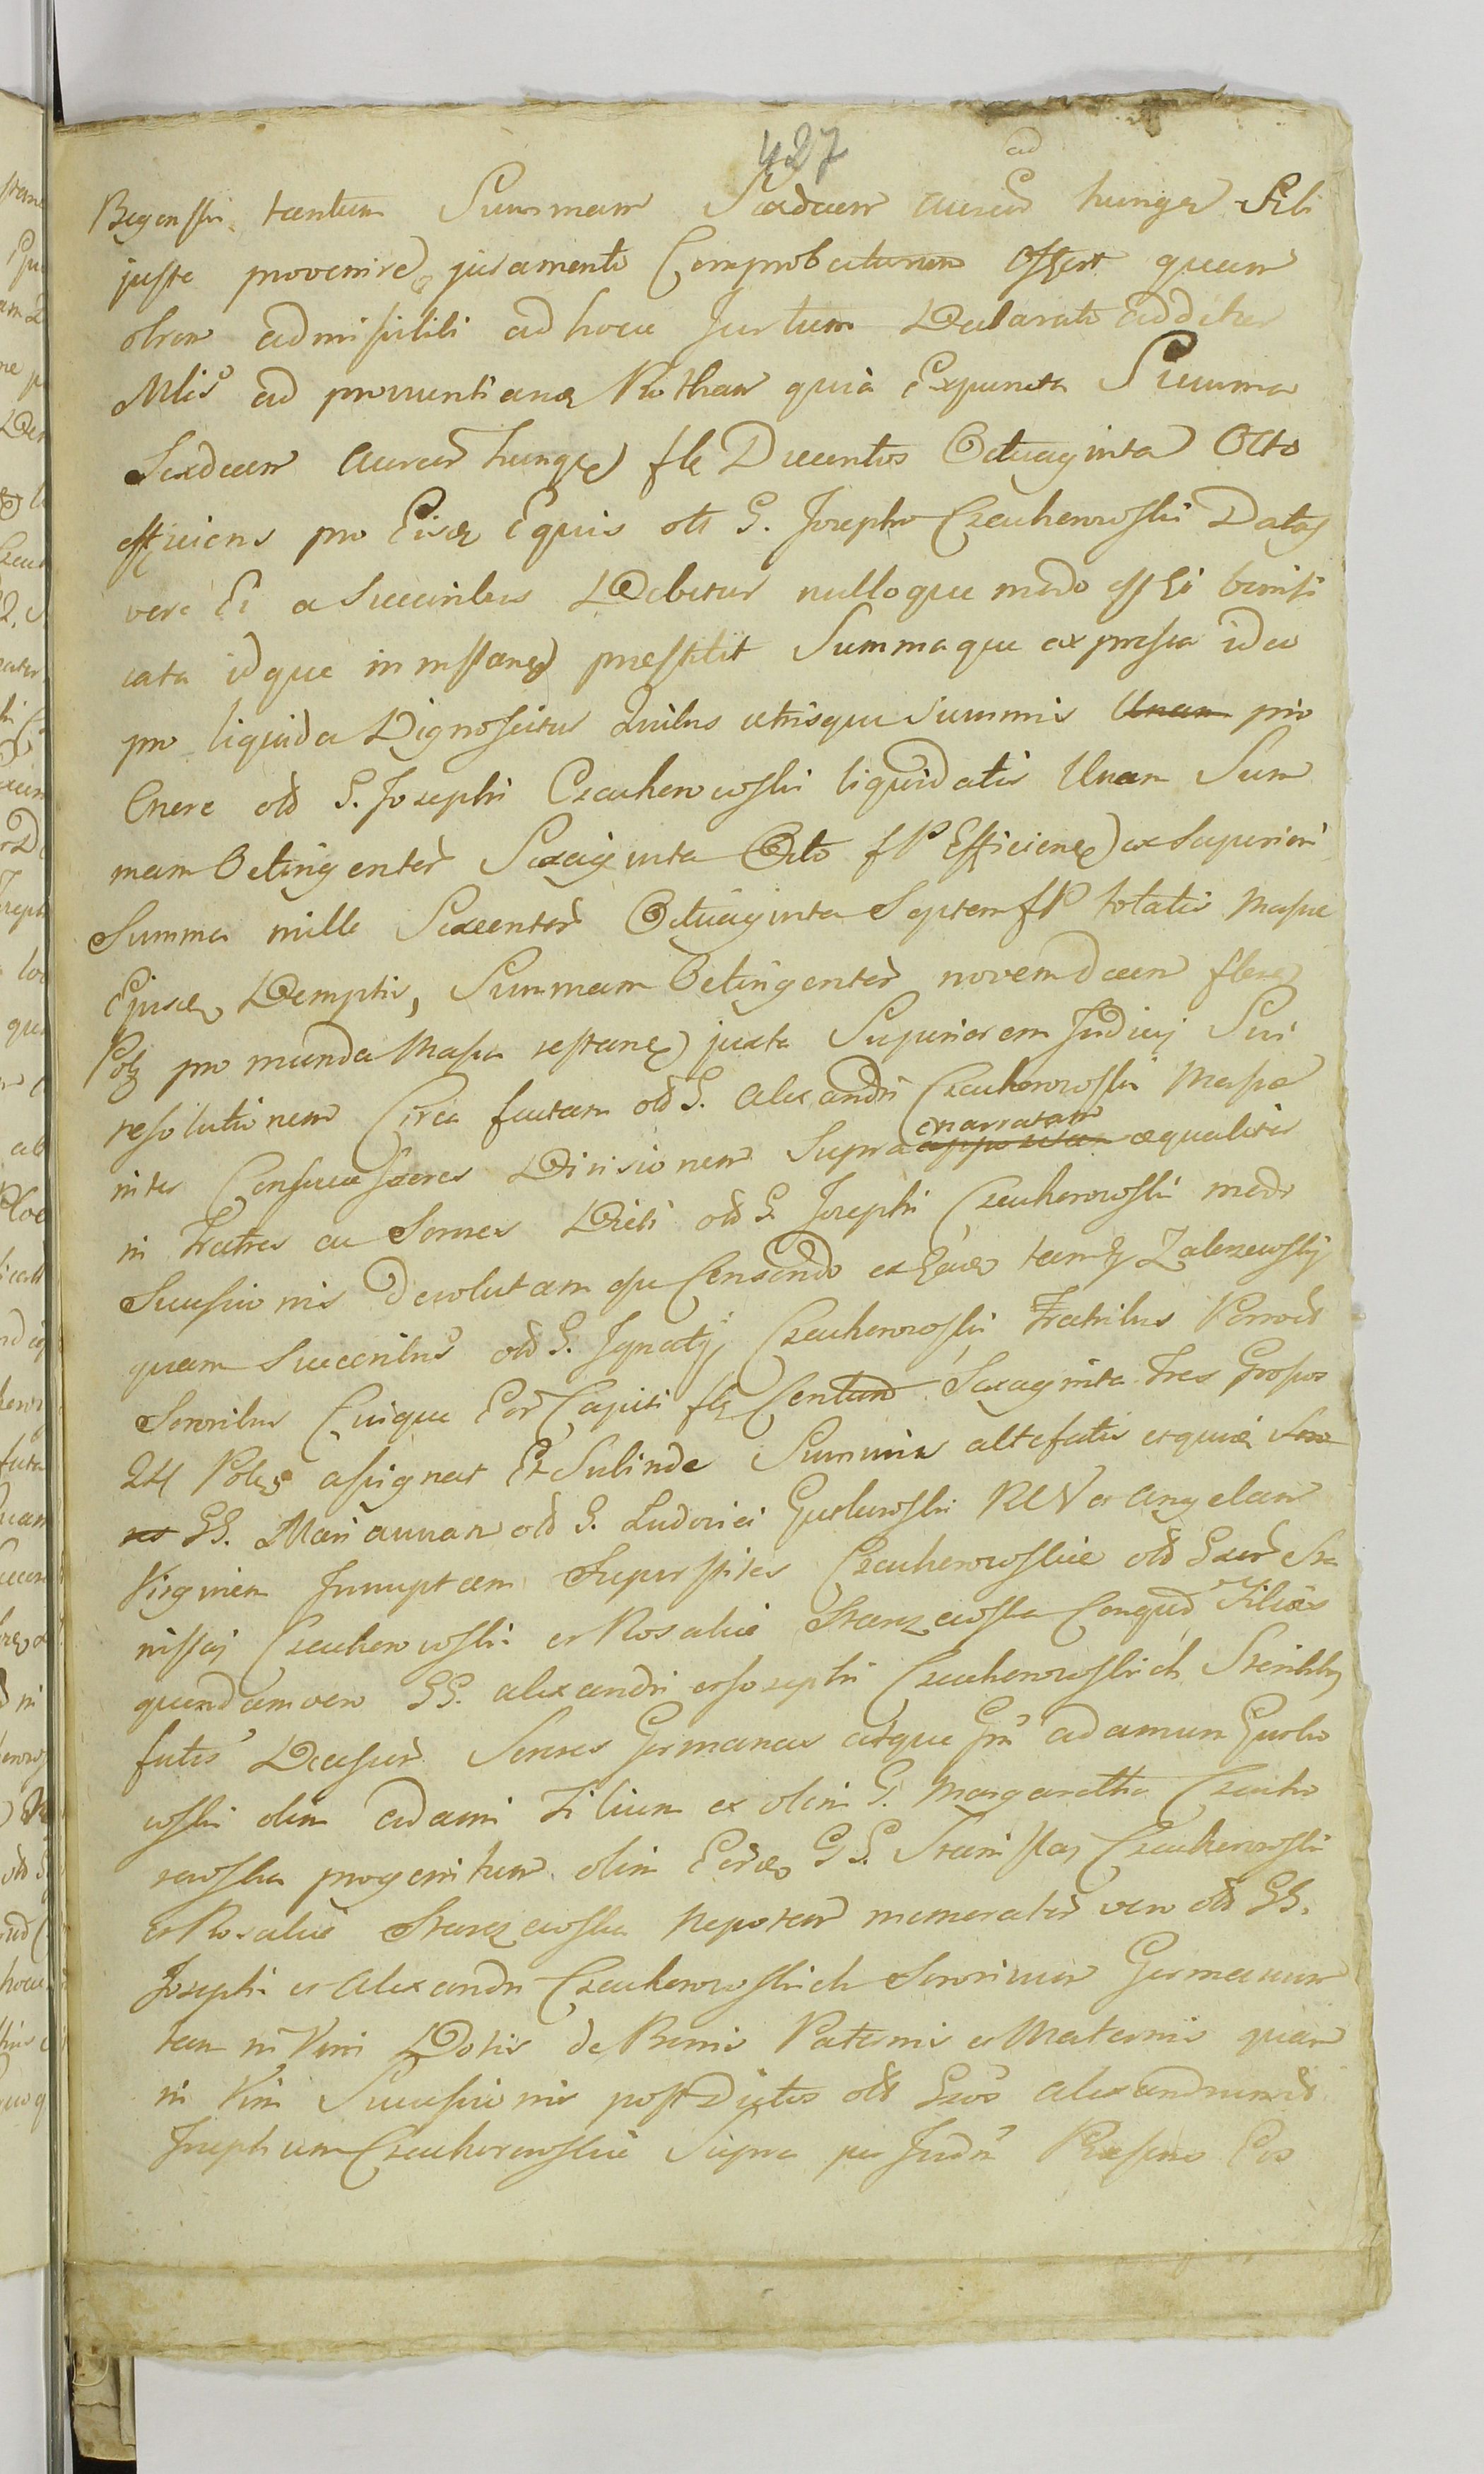 427
ad
tantum Summam Sexdecem aureor hungar Sibi
juste provenire juramento Comprobaturum offert quam
obrem admissibili ad hocce Jur tum Declarato
ad pronuntiand Rotham quia Expuncta Summa
Sexdecem Aureor hungar fle Ducentos Octuaginta Octo
efficiens pro Eisd Equis olt G. Josepho Czachorowski Datis
vere Ei a Succribus Debetur nulloque modo est Ei bonifi
cata idque in instan praestitit Summaque expressa ideo
pro liquida Dignoscitur Quibus utrisque Summis Unam pro
Onere old G. Josephi Czachorowski liquidatis Unam Sum
mam Octingentor Sexaginta Octo fP Efficien ex Superiori
Summa mille Sexcentor Octuaginta Septem fP totalis Massae
Ejusd Demptis, Summam Octingentor novemdecem flen
Pol pro munda Massa restan juxta Superiorem Judicij Sui
resolutionem Circa factam old G. Alexandri Czachorowski Massae
enarratam
inter Consuccessores Divisionem Supra appositam aequaliter
in Fratres ac Sorores Dicti old G. Josephi Czachorowski modo
Successionis Devolutam esse Censendo tam Zalenzewskij
quam Succribus old G. Ignatij Czachorowski Fratribus
Sororibus Cuique Eor Capiti fle Centum Sexaginta Tres Grossos
24 Pol assignat Et Subinde Summis altefatis et quia Soro
res GG. Mariannam old G. Ludovici Gurbowski et Angelam
Virginem Innuptam Superstites Czachorowskie old Stae
nislaj Czachorowski et Rosaliae Conjud Filias
quondam vero GG. Alexandri et Josephi Czachorowskich Sterilibus
fatis Decessor Sorores Germanas atque Adamum Gurbo
wski olim Adami Filium ex olim G. Margaretha Czacho
rowska progenitum olim Eord GG. Stanislaj Czachorowski
et Rosaliae Nepotem memorator vero old GG.
Josephi et Alexandri Czachorowskich Sororinum Germanum
tam in Vim Dotis de Bonis Paternis et Maternis quam
in Vim Successionis post Dictos old Alexandrum et
Josephum Czachorowskie Supra per Judm